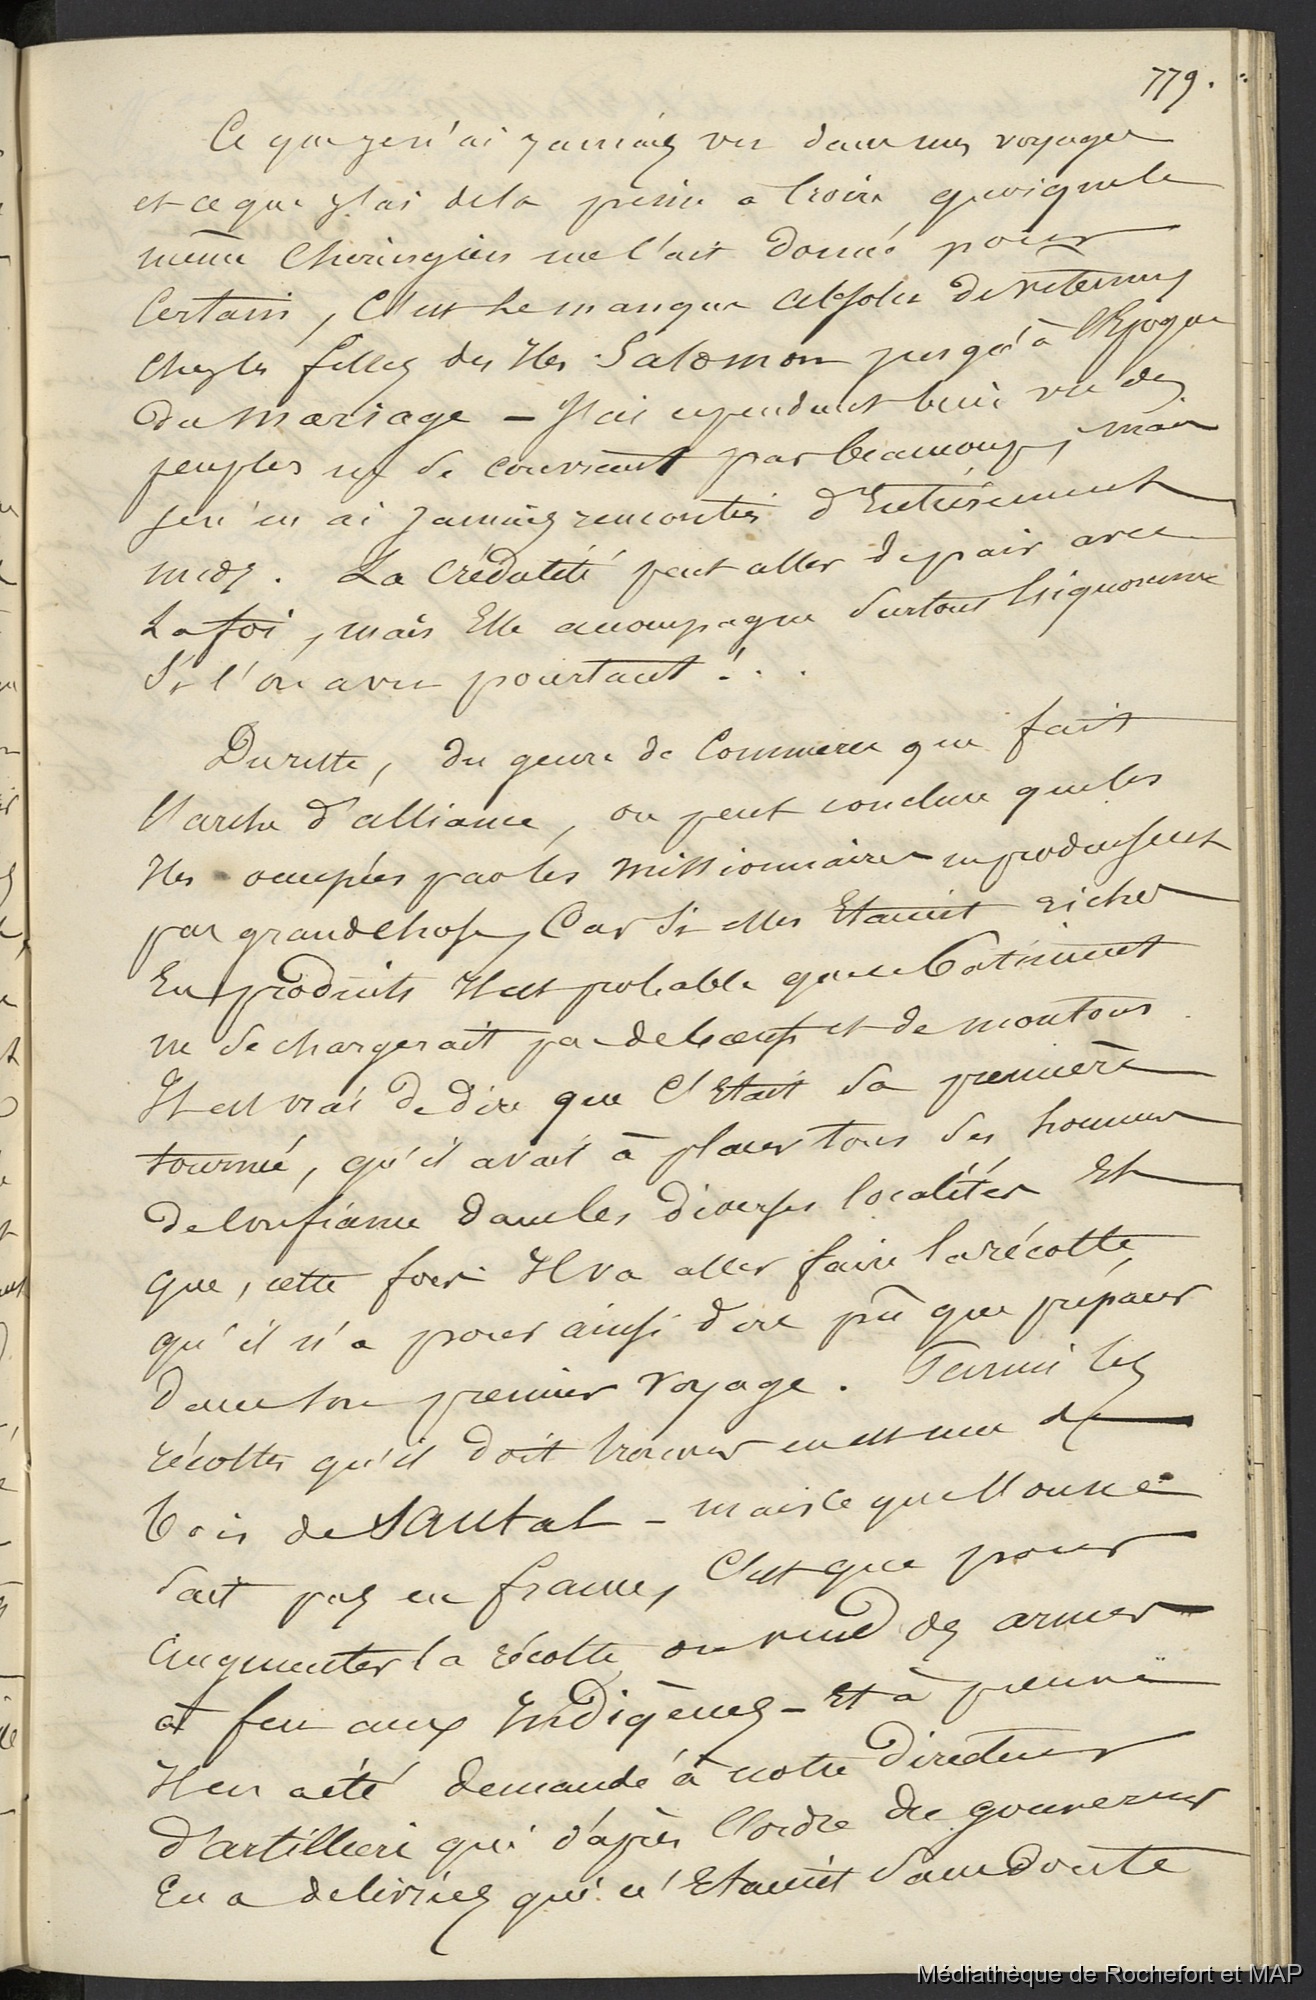 779.
Ce que je n'ai jamais vu dans mes voyages
et ce que j'ai de la peine a Croire quoique le
même Chirurgien me l'ait donné pour
Certain, C'est le manque absolu de vetemens
chez les filles des Iles Salomon jusqu'à l'Epoque
du mariage – J'ai cependant bien vu des
peuples ne se couvrant pas beaucoup, mais
je n'en ai jamais rencontrés d'Entièrement
nuds. La Crédulité peut aller de pair avec
La foi, mais Elle accompagne surtout l'ignorance
Si l'on a vu pourtant !...
Du reste, du genre de Commerce que fait
l'arche d'alliance, on peut conclure que les
Iles occupées par les missionnaires ne produisent
pas grand chose, Car Si elles Etaient riches
En produits Il est probable que ce bâtiment
ne se chargerait pas de boeufs et de moutons
Il est vrai de dire que C'Etait sa première
tournée, qu'il avait à placer tous ses hommes
de Confiance dans les diverses localités Et
que, cette fois Il va aller faire la récolte
qu'il n'a pour ainsi dire pû que préparer
dans son premier voyage. Parmi les
récoltes qu'il doit trouver en est une de
bois de Santal – mais ce que l'on ne
sait pas en france, C'est que pour
augmenter la récolte on vend des armes
à feu aux Indigènes – Et à peine
Il en a été demandé à notre Directeur
d'artillerie qui d'après l'ordre du gouverneur
En a delivrées qui n'Etaient sans doute
Médiathèque de Rochefort et MAP